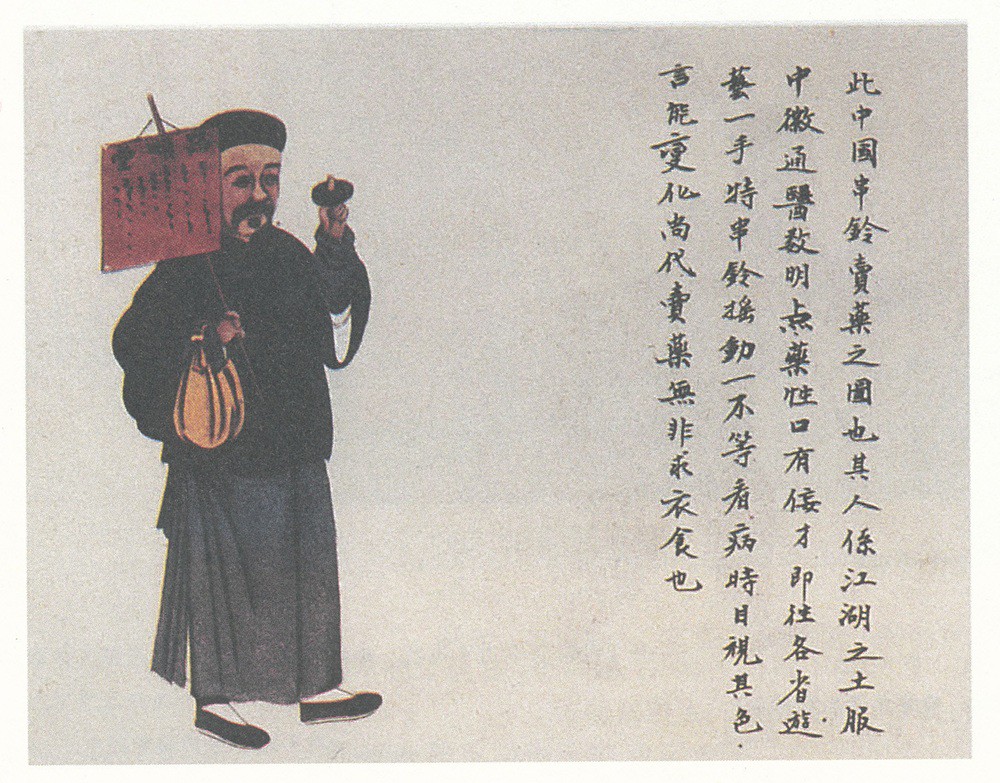 此中國串鈴賣藥之圖也其人係江湖之士服
中微通醫教明点藥性口有倿才即往各省遊
藝一手持串鈴搖動一不等看病時目視其色
言能變化尚代賣藥無非求衣食也